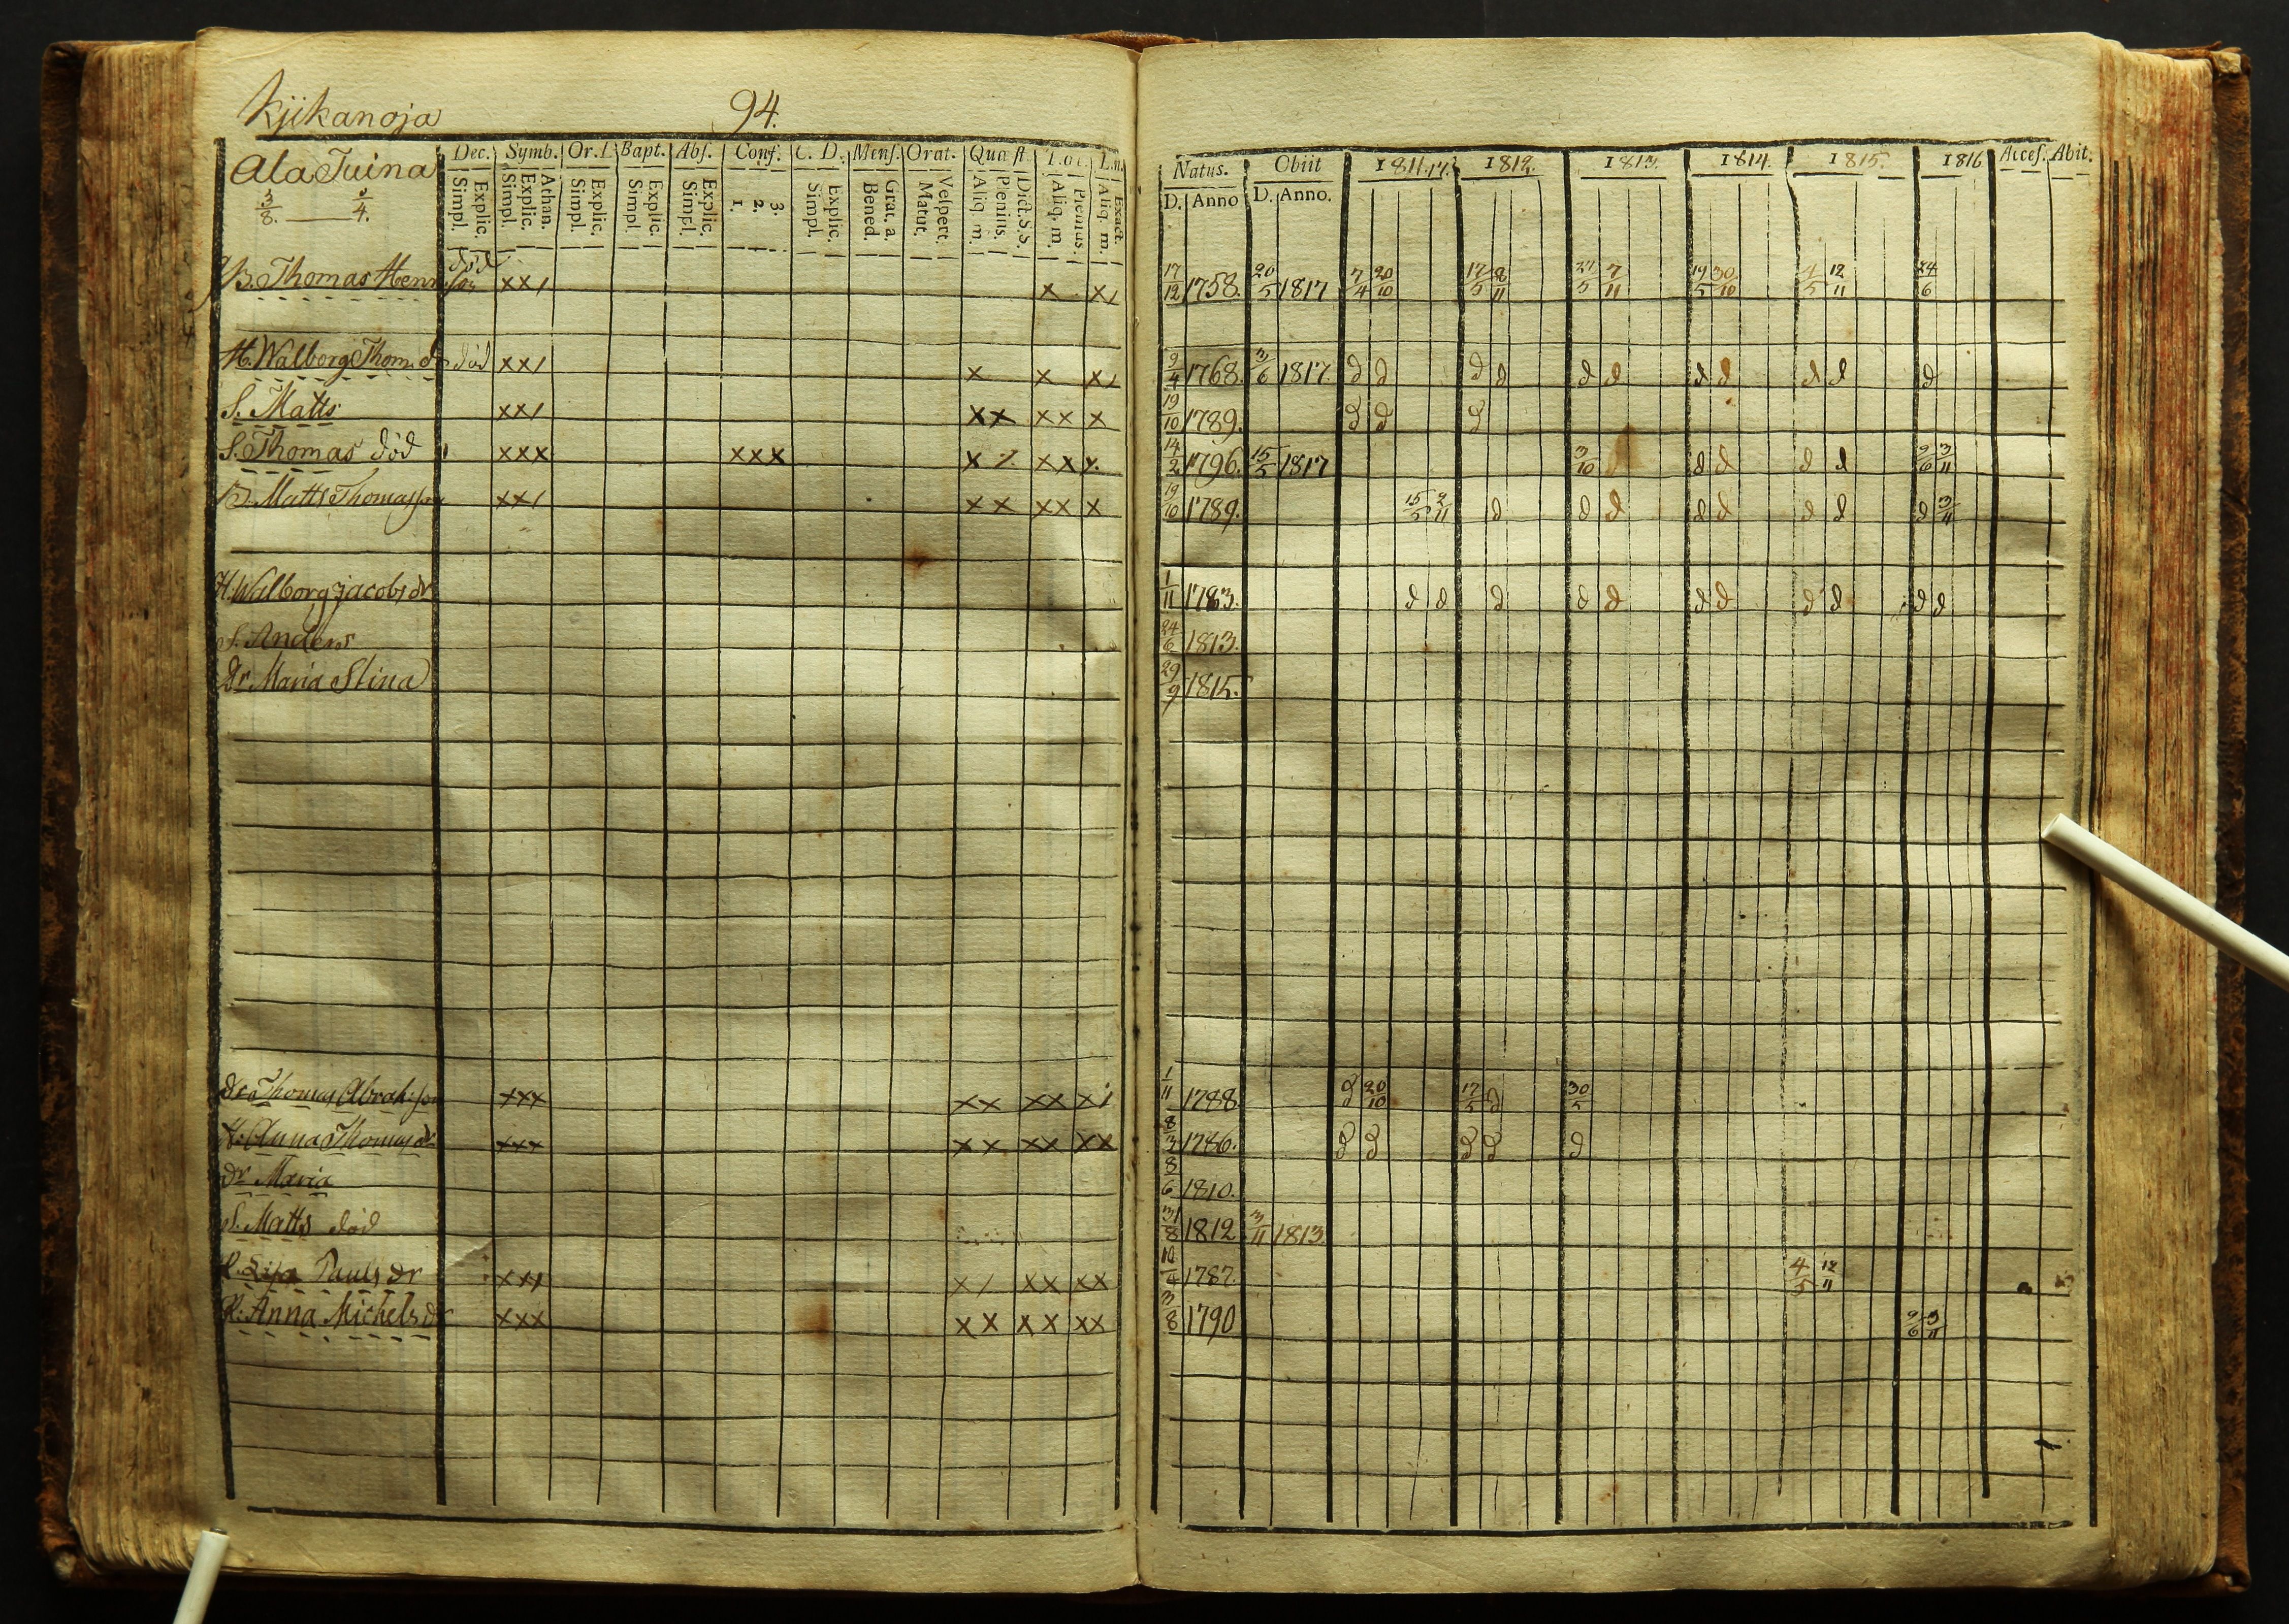 Kjikanoja 94.
Dec. Symb. Or. D. Bapt. Abs. Conf. C. D. Mens. Orat. Quæst. Loc. Natus. Obiit 1811.17. 1812. 1813. 1814. 1815. 1816 Acces. Abit.
Ala Tuina Simpl. Explic. Simpl. Explic. Athan. Simpl. Explic. Simpl. Explic. Simpl. Explic. 1. 2. 3. Simpl. Explic. Bened. Grat. a. Matut. Vespert. Aliq. m. Plenius. Dict. S.S. Aliq. m. Plenius. Aliq. m. Exact. D. Anno D. Anno.
3/8. — 3/4.
B. Thomas Henrisson död xx/ x x/ 17/12 1758. 20/5 1817 7/4 20/10 17/5 8/11 27/5 7/11 19/5 30/10 4/5 12/11 24/6
H. Walborg Thom. dr död xx/ x x x/ 9/4 1768. 3/6 1817. d d d d d d d d d d d
S. Matts xx/ xx xx x 19/10 1789. d d d
S. Thomas död xxx xxx x xx x 14/2 1796. 15/5 1817 3/10 d d d d d 9/6 3/11
B. Matts Thomasson xx/ xx xx x 19/10 1789. 15/5 2/11 d d d d d d d d 3/11
H. Walborg Jacobs dr 1/11 1783. d d d d d d d d d d d
S. Anders 24/6 1813.
Dr. Maria Stina 29/9 1815.
Thomas Abrahsson xxx xx xx x/ 1/11 1788. d 20/10 17/5 d 30/5
H. Anna Thomas dr xxx xx xx xx 8/3 1786. d d d d d
dr Maria 8/6 1810.
S. Matts död 31/8 1812 3/11 1813.
P. Lisa Pauls dr xx/ x/ xx xx 10/4 1787. 4/5 12/11
P. Anna Michels dr xxx xx xx xx 3/8 1790 9/6 3/11